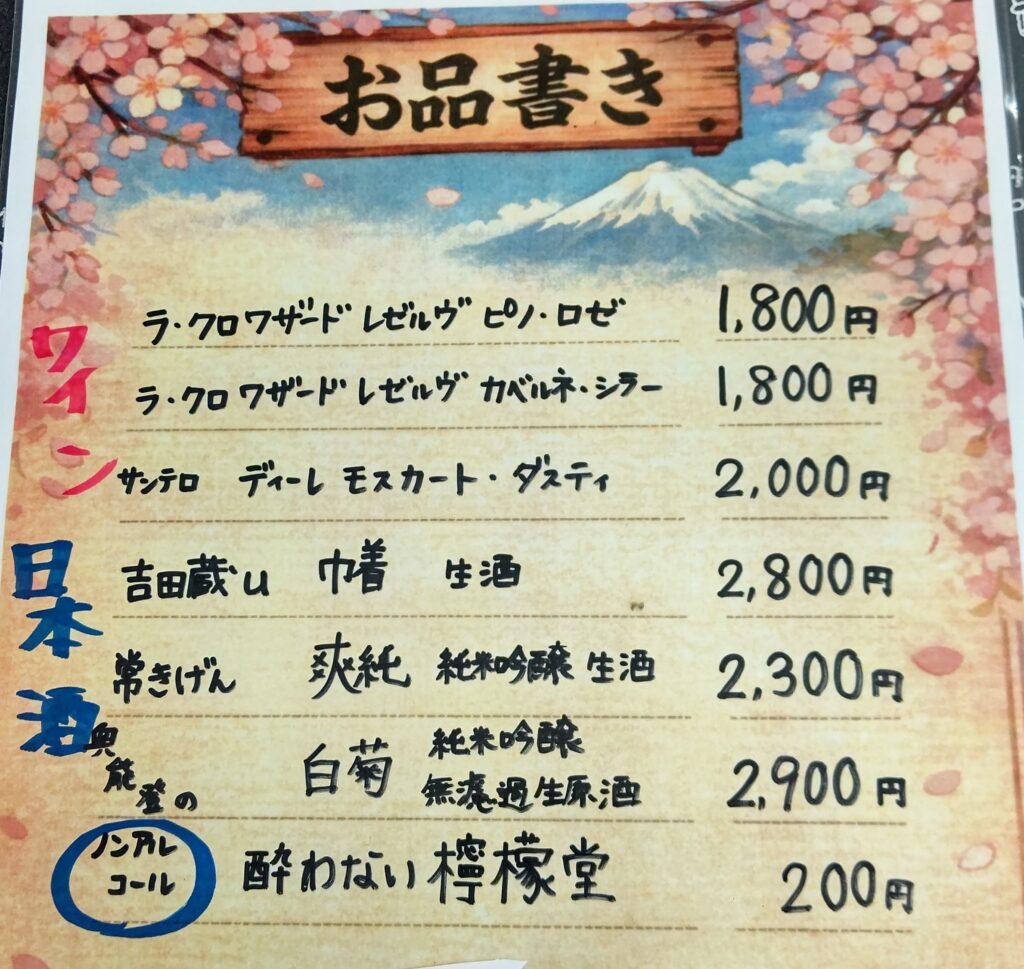 お品書き
ワイン
ラ・クロワザード レゼルヴ ピノ・ロゼ 1,800円
ラ・クロワザード レゼルヴ カベルネ・シラー 1,800円
サンテロ ディーレ モスカート・ダスティ 2,000円
日本酒
吉田蔵u 巾着 生酒 2,800円
常きげん 爽純 純米吟醸 生酒 2,300円
奥能登の 白菊 純米吟醸
無濾過生原酒 2,900円
ノンアルコール 酔わない檸檬堂 200円